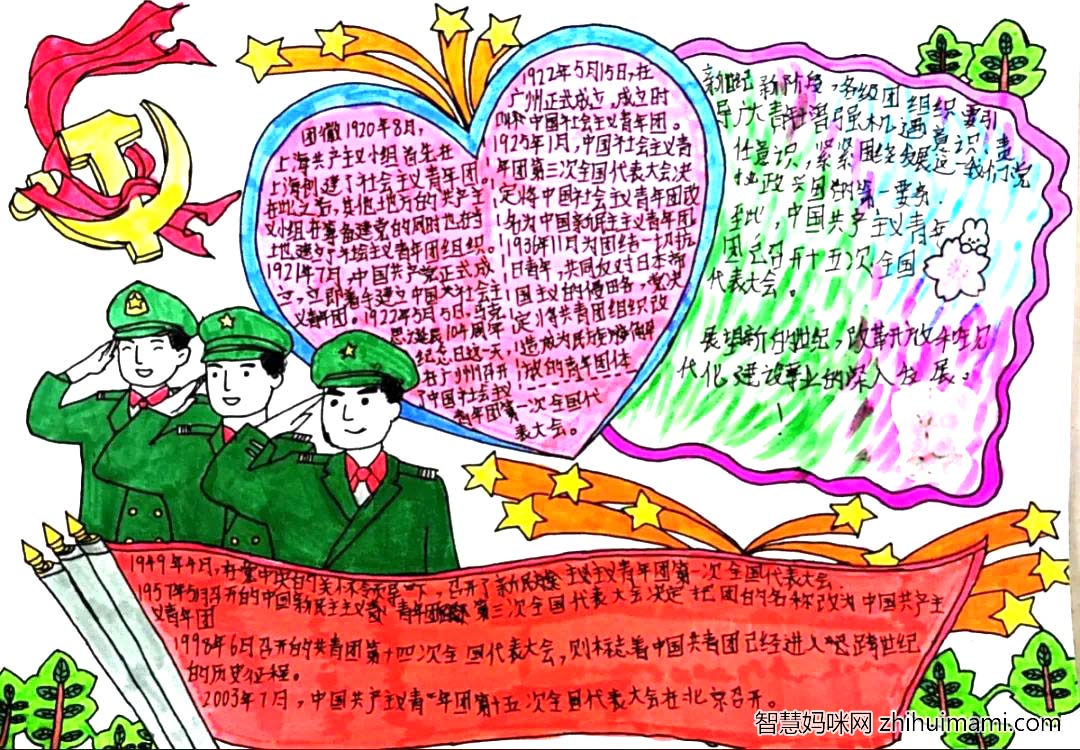 团徽1920年8月,
上海共产主义小组首先在
上海创建了社会主义青年团。
在此之后,其他地方的共产主
义小组在筹备建党的同时也在当
地建
青年团组织。
1921年7月,中国共产党正式成
立,立即着手建立中国社会主
义青年团。1922年5月5日,马克
思诞辰104周年
纪念日这一天,
在广州召开
了中国社会主义
青年团第一次全国代
表大会。
1922年5月15日,在
广州正式成立,成立时
中国社会主义青年团。
1925年1月,中国社会主义青
年团第三次全国代表大会决
定将中国社会主义青年团改
名为中国新民主主义青年团
1936年11月为团结一切抗
日青年,共同反对日本帝
国主义的侵
党决
定将共青团组织改
造成为民族解放
放的青年团体
新世纪新阶段,各级团组织要引
导广大青年增强机遇意识、责
任意识,紧紧围绕发展这一我们党
执政兴国的第一要务.
至此,中国共产主义青年
团已召开十五次全国
代表大会。
展望新的世纪,改革开放和现
代化建设事业的深入发展。
!
1949年4月,在党中央的关怀和领导下,召开了新民主主义青年团第一次全国代表大会.
1957年5月召开的中国新民主主义青年团第三次全国代表大会决定把团的名称改为中国共产主
义青年团
1998年6月召开的共青团第十四次全国代表大会,则标志着中国共青团已经进入跨世纪
的历史征程。
2003年7月,中国共产主义青年团第十五次全国代表大会在北京召开。
智慧妈咪网 zhihuimami.com